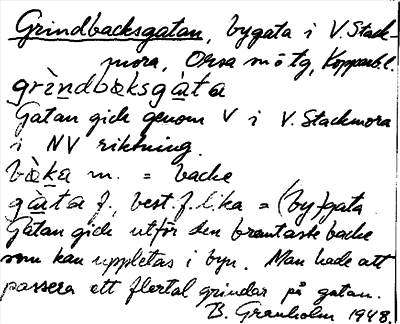 Grindbacksgatan, bygata i V. Stack-
mora, Orsa m o tg, Kopparb.l.
grìndbàksgàta
Gatan gick genom V i V. Stackmora
i NV riktning.
bàka m. = backe
gàta f., best. f. lika = (by)gata
Gatan gick utför den brantaste backe
som kan uppletas i byn. Man hade att
passera ett flertal grindar på gatan.
B. Granholm 1948.